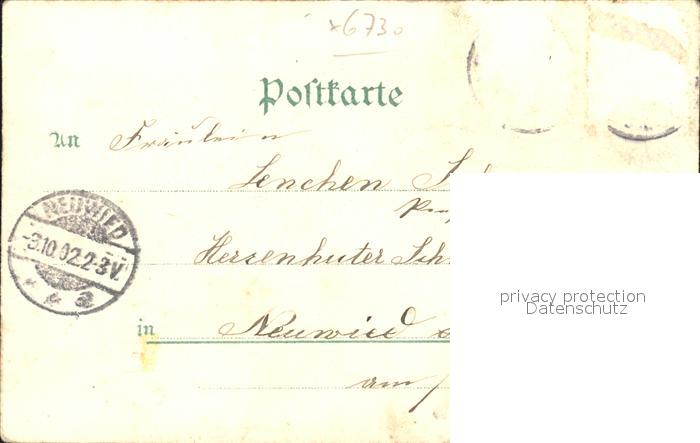 x6730
Postkarte
An Fräulein
Lenchen
Herrenhuter Sch
NEUWIED
-3.10.02.2-3V.
a
in Neuwied a
am
privacy protection
Datenschutz